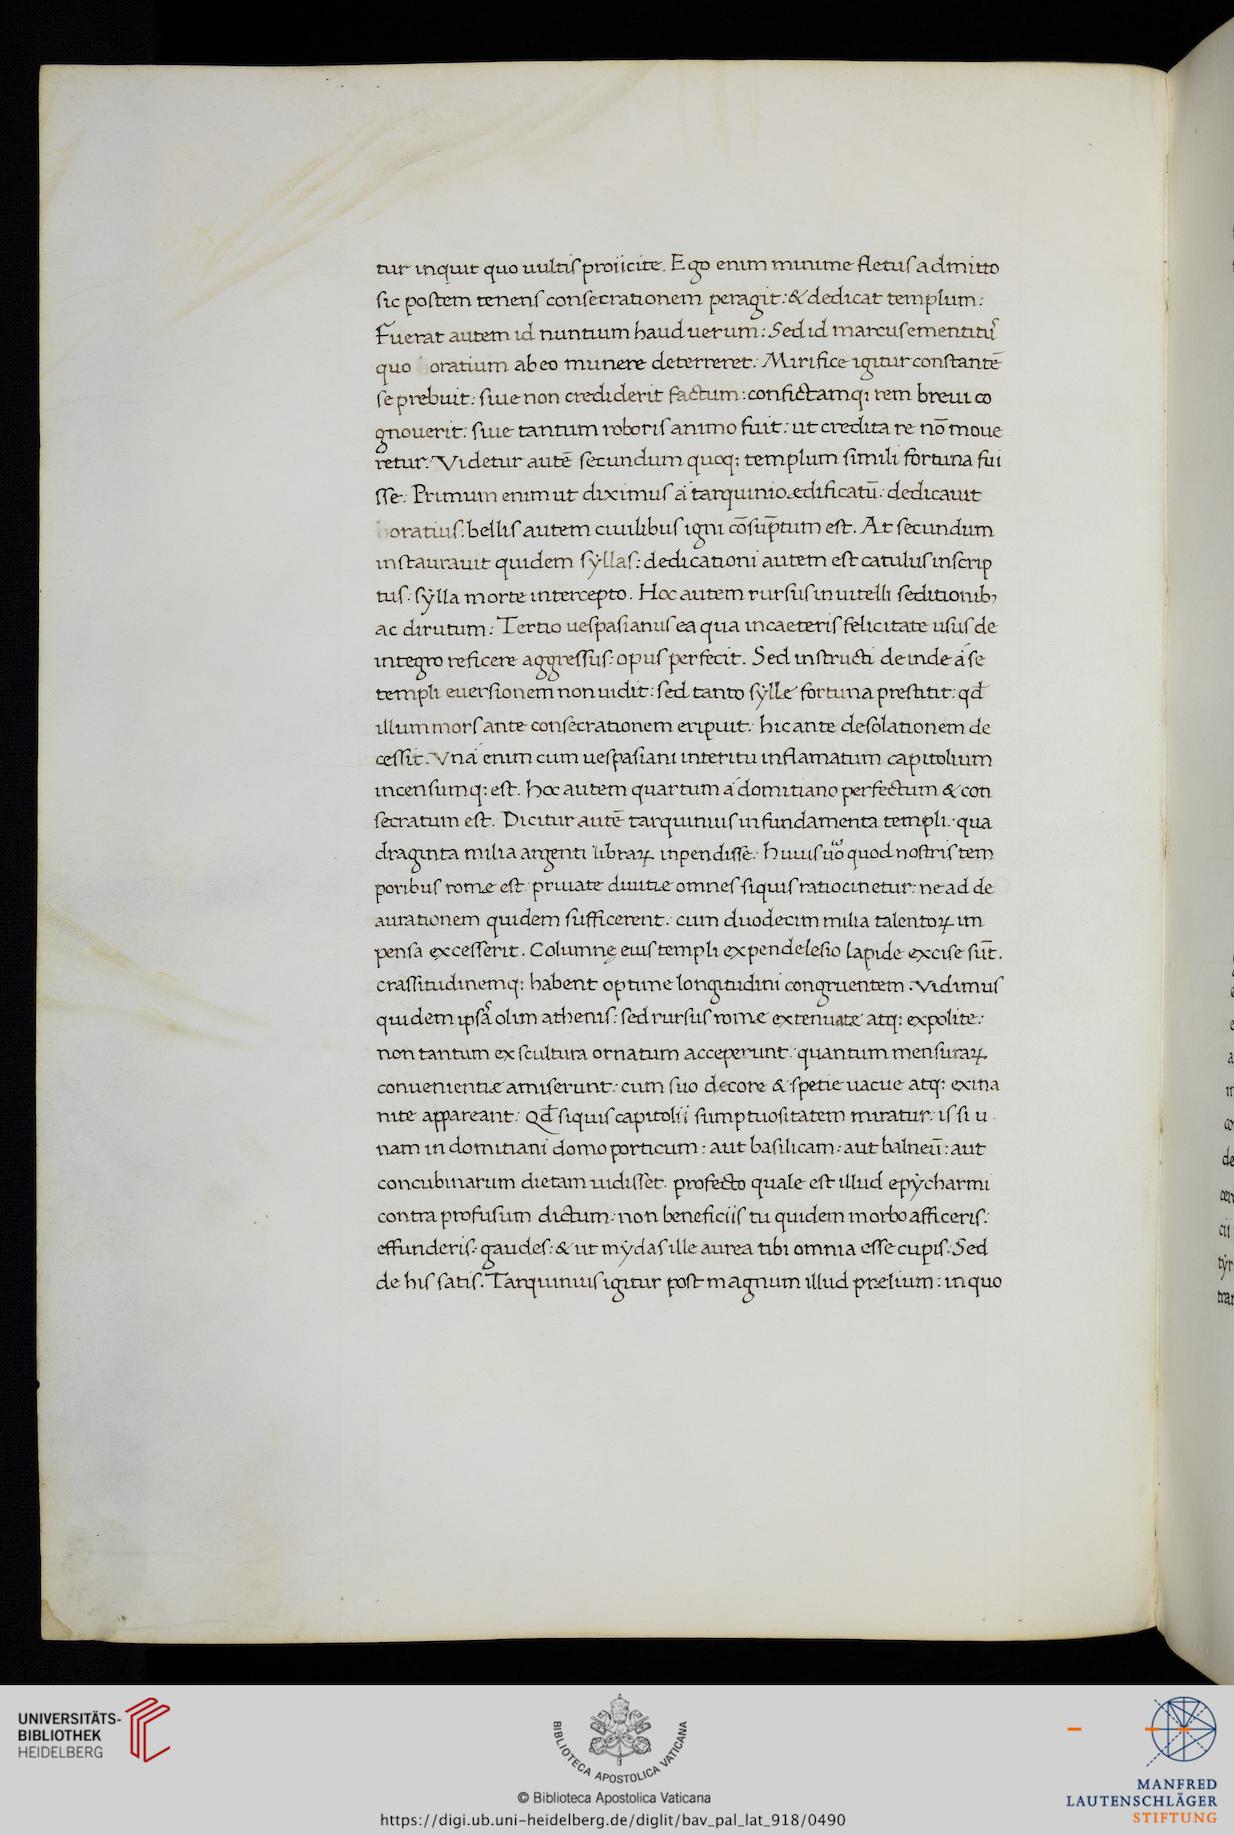 tur inquit quo uultis proiicite. Ego enim minime fletus admitto
sic postem tenens consecrationem peragit: & dedicat templum:
Fuerat autem id nuntium haud uerum: Sed id marcus ementitur̃
quo horatium ab eo munere deterreret: Mirifice igitur constantē
se prebuit: siue non crediderit factum: confictamq; rem breui co
gnouerit: siue tantum roboris animo fuit: ut credita re nō moue
retur: Videtur autē secundum quoq; templum simili fortuna fui
sse: Primum enim ut diximus á tarquinio ædificatū: dedicauit
horatius: bellis autem ciuilibus igni cōsūptum est. At secundum
instaurauit quidem sẏllas: dedicationi autem est catulus inscrip
tus: sẏlla morte intercepto. Hoc autem rursus in uitelli seditionib;
ac dirutum: Tertio uespasianus ea qua in caeteris felicitate usus de
integro reficere aggressus: opus perfecit. Sed instructi deinde á se
templi euersionem non uidit: sed tanto sẏlle fortuna prestitit: qđ
illum mors ante consecrationem eripuit: hic ante desolationem de
cessit. Vná enim cum uespasiani interitu inflamatum capitolium
incensumq; est. hoc autem quartum á domitiano perfectum & con
secratum est. Dicitur autē tarquinius in fundamenta templi: qua
draginta milia argenti libraꝝ inpendisse: huius uͦo quod nostris tem
poribus romæ est: priuate diuitiæ omnes siquis ratiocinetur: ne ad de
aurationem quidem sufficerent: cum duodecim milia talentoꝝ im
pensa excesserit. Columnę eius templi expendelesio lapide excise sūt.
crassitudinemq; habent optime longitudini congruentem. Vidimus
quidem ipsas olim athenis: sed rursus romæ extenuatæ atq; expolite:
non tantum ex scultura ornatum acceperunt: quantum mensuraꝝ
conuenientiæ amiserunt: cum suo decore & spetie uacue atq; exina
nite appareant: Qđ siquis capitolii sumptuositatem miratur: is si u
nam in domitiani domo porticum: aut basilicam: aut balneū: aut
concubinarum dietam uidisset: profecto quale est illud epẏcharmi
contra profusum dictum: non beneficiis tu quidem morbo afficeris:
effunderis: gaudes: & ut mẏdas ille aurea tibi omnia esse cupis: Sed
de his satis. Tarquinius igitur post magnum illud prælium: in quo
UNIVERSITÄTS-
BIBLIOTHEK
HEIDELBERG
BIBLIOTECA APOSTOLICA VATICANA
© Biblioteca Apostolica Vaticana
https://digi.ub.uni-heidelberg.de/diglit/bav_pal_lat_918/0490
MANFRED
LAUTENSCHLÄGER
STIFTUNG